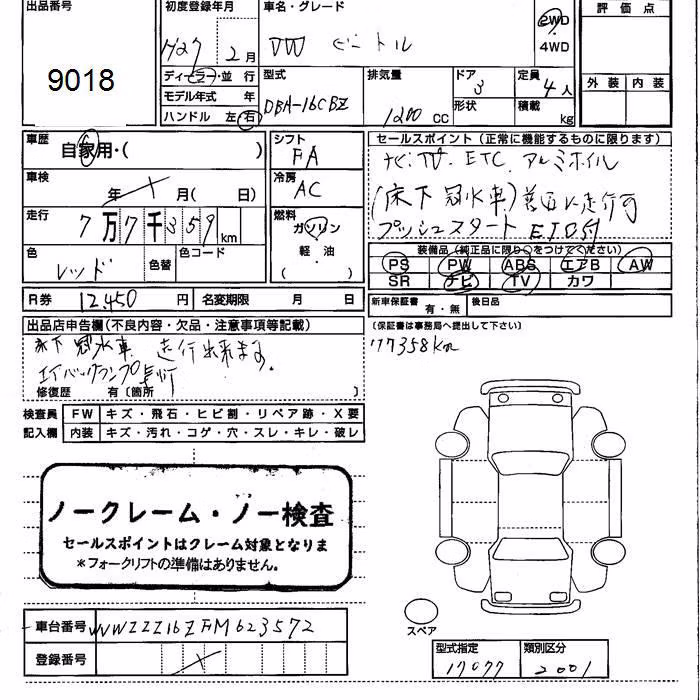 出品番号
9018
初度登録年月
H27 2月
車名・グレード
VW ビートル
2WD
4WD
評価点
外装 内装
ディーラー・並行
モデル年式 年
ハンドル 左 右
型式
DBA-16CBZ
排気量
1200 CC
ドア
3
形状
定員
4人
積載
kg
車歴
自家用・( )
シフト
FA
車検
年 月( 日)
冷房
AC
走行
7万7千359 km
燃料
ガソリン
軽・油
色
レッド
色替
色コード
R券 12,450円
名変期限 月 日
セールスポイント(正常に機能するものに限ります)
ナビ・TV. ETC アルミホイル
(床下冠水車)普通に走行可
プッシュスタート ETC付
装備品(純正品に限り○をつけてください)
PS PW ABS エアB AW
SR ナビ TV カワ
新車保証書
有・無
後日品
(保証書は事務局へ提出して下さい)
77358Km
出品店申告欄(不良内容・欠品・注意事項等記載)
床下冠水車 走行出来ます。
エアバックランプ点灯
修復歴 有〔箇所 〕
検査員 FW キズ・飛石・ヒビ割・リペア跡・X要
記入欄 内装 キズ・汚れ・コゲ・穴・スレ・キレ・破レ
ノークレーム・ノー検査
セールスポイントはクレーム対象となりま
*フォークリフトの準備はありません。
スペア
車台番号 WVWZZZ16ZFM623572
登録番号
型式指定
17077
類別区分
2001